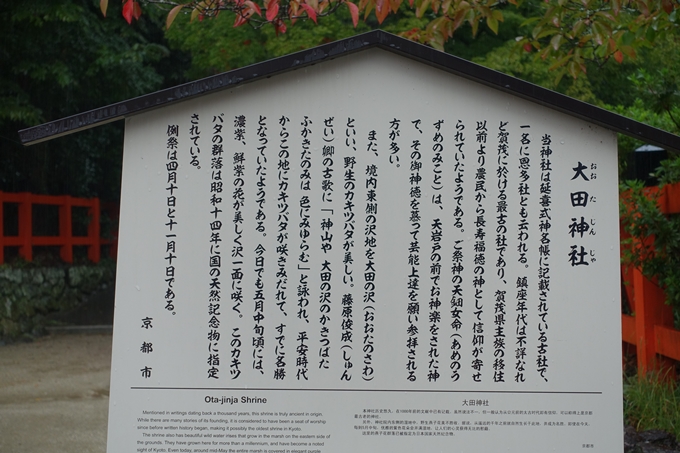 大田神社
おおたじんじゃ
当神社は延喜式神名帳に記載されている古社で、
一名に恩多社とも云われる。鎮座年代は不詳なれ
ど賀茂に於ける最古の社であり、賀茂県主族の移住
以前より農民から長寿福徳の神として信仰が寄せ
られていたようである。ご祭神の天鈿女命（あめのう
ずめのみこと）は、天岩戸の前でお神楽をされた神
で、その御神徳を慕って芸能上達を願い参拝される
方が多い。
また、境内東側の沢地を大田の沢（おおたのさわ）
といい、野生のカキツバタが美しい。藤原俊成（しゅん
ぜい）卿の古歌に「神山や 大田の沢のかきつばた
ふかきたのみは 色にみゆらむ」と詠われ、平安時代
からこの地にカキツバタが咲きみだれて、すでに名勝
となっていたようである。今日でも五月中旬頃には、
濃紫、鮮紫の花が美しく沢一面に咲く。このカキツ
バタの群落は昭和十四年に国の天然記念物に指定
されている。
例祭は四月十日と十一月十日である。
京都市
Ota-jinja Shrine
Mentioned in writings dating back a thousand years, this shrine is truly ancient in origin.
While there are many stories of its founding, it is considered to have been a seat of worship
since before written history began, making it possibly the oldest shrine in Kyoto.
The shrine also has beautiful wild water irises that grow in the marsh on the eastern side of
the grounds. They have grown here for more than a millennium, and have become a noted
sight of Kyoto. Even today, around mid-May the entire marsh is covered in elegant purple
大田神社
京都市